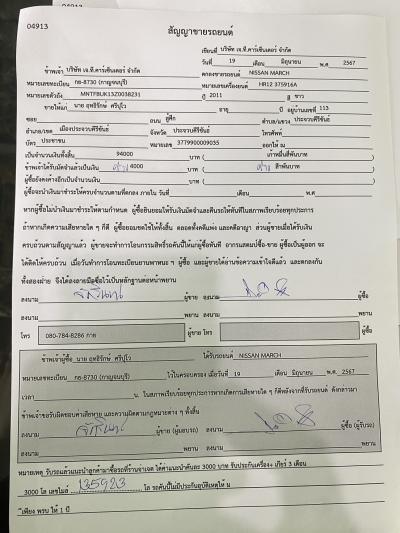 04913
04913
สัญญาขายรถยนต์
เขียนที่ บริษัท เจ.ที.คาร์เซ็นเตอร์ จำกัด
วันที่ 19 เดือน มิถุนายน พ.ศ. 2567
ข้าพเจ้า บริษัท เจ.ที.คาร์เซ็นเตอร์ จำกัด ตกลงขายรถยนต์ NISSAN MARCH
หมายเลขทะเบียน กธ-8730 (กาญจนบุรี) หมายเลขเครื่องยนต์ HR12 375916A
หมายเลขตัวถัง MNTFBUK13Z0038231 ปี 2011 สี ขาว
ขายให้แก่ นาย อุทธิรักษ์ ศรีบุไว อายุ ปี อยู่บ้านเลขที่ 113
ซอย ถนน สู้ศึก ตำบล/แขวง ประจวบคีรีขันธ์
อำเภอ/เขต เมืองประจวบคีรีขันธ์ จังหวัด ประจวบคีรีขันธ์ โทรศัพท์
บัตร ประชาชน หมายเลข 3779900009035 ออกให้ ณ
เป็นจำนวนเงินทั้งสิ้น 94000 บาท ( เก้าหมื่นสี่พันบาท )
ข้าพเจ้าได้รับมัดจำแล้วเป็นเงิน 4000 บาท ( สี่พันบาท )
ผู้ซื้อยังคงค้างอีกเป็นจำนวนเงิน บาท ( )
ผู้ซื้อจะนำเงินมาชำระให้ครบจำนวนตามที่ตกลง ภายใน วันที่ เดือน พ.ศ
หากผู้ซื้อไม่นำเงินมาชำระให้ตามกำหนด ผู้ซื้อยินยอมให้ริบเงินมัดจำและคืนรถให้ทันทีในสภาพเรียบร้อยทุกประการ
ถ้าหากเกิดความเสียหายใด ๆ ก็ดี ผู้ซื้อยอมชดใช้ให้ทั้งสิ้น ตลอดทั้งคดีแพ่ง และคดีอาญา ส่วนผู้ขายเมื่อได้รับเงิน
ครบถ้วนตามสัญญาแล้ว ผู้ขายจะทำการโอนกรรมสิทธิ์รถคันนี้ให้แก่ผู้ซื้อทันที จากแสตมป์ซื้อ-ขาย ผู้ซื้อเป็นผู้ออก จะ
ได้ติดให้ครบถ้วน เมื่อวันทำการโอนทะเบียนยานพาหนะ ฯ ผู้ซื้อ และผู้ขายได้อ่านข้อความเข้าใจดีแล้ว และตกลงกัน
ทั้งสองฝ่าย จึงได้ลงลายมือชื่อไว้เป็นหลักฐานต่อหน้าพยาน
ลงนาม ผู้ขาย ลงนาม ผู้ซื้อ
ลงนาม พยาน ลงนาม พยาน
โทร 080-784-8286 กาย ผู้ขาย โทร ผู้ซื้อ
ข้าพเจ้าผู้ซื้อ นาย อุทธิรักษ์ ศรีบุไว ได้รับรถยนต์ NISSAN MARCH
หมายเลขทะเบียน กธ-8730 (กาญจนบุรี) ไว้ในครอบครอง เมื่อวันที่ 19 เดือน มิถุนายน พ.ศ. 2567
เวลา น. ในสภาพเรียบร้อยทุกประการหากเกิดการเสียหายใด ๆ ก็ดีหลังจากที่รับรถยนต์ ดังกล่าวมา
ข้าพเจ้าขอรับผิดชอบค่าเสียหาย และความผิดตามกฎหมายต่าง ๆ ทั้งสิ้น
ลงนาม ผู้ขาย (ผู้มอบรถ) ลงนาม ผู้ซื้อ (ผู้รับรถ)
ลงนาม พยาน ลงนาม พยาน
หมายเหตุ รับรถแล้วแนะนำลูกค้ามาซื้อรถที่ร้านจ่าเจต ได้ค่าแนะนำคันละ 3000 บาท รับประกันเครื่อง+ เกียร์ 3 เดือน
3000 โล เลขไมล์ 135923 โล รถคันนี้ไม่มีประกันอุบัติเหตุให้ น
*เพียง พรบ ให้ 1 ปี